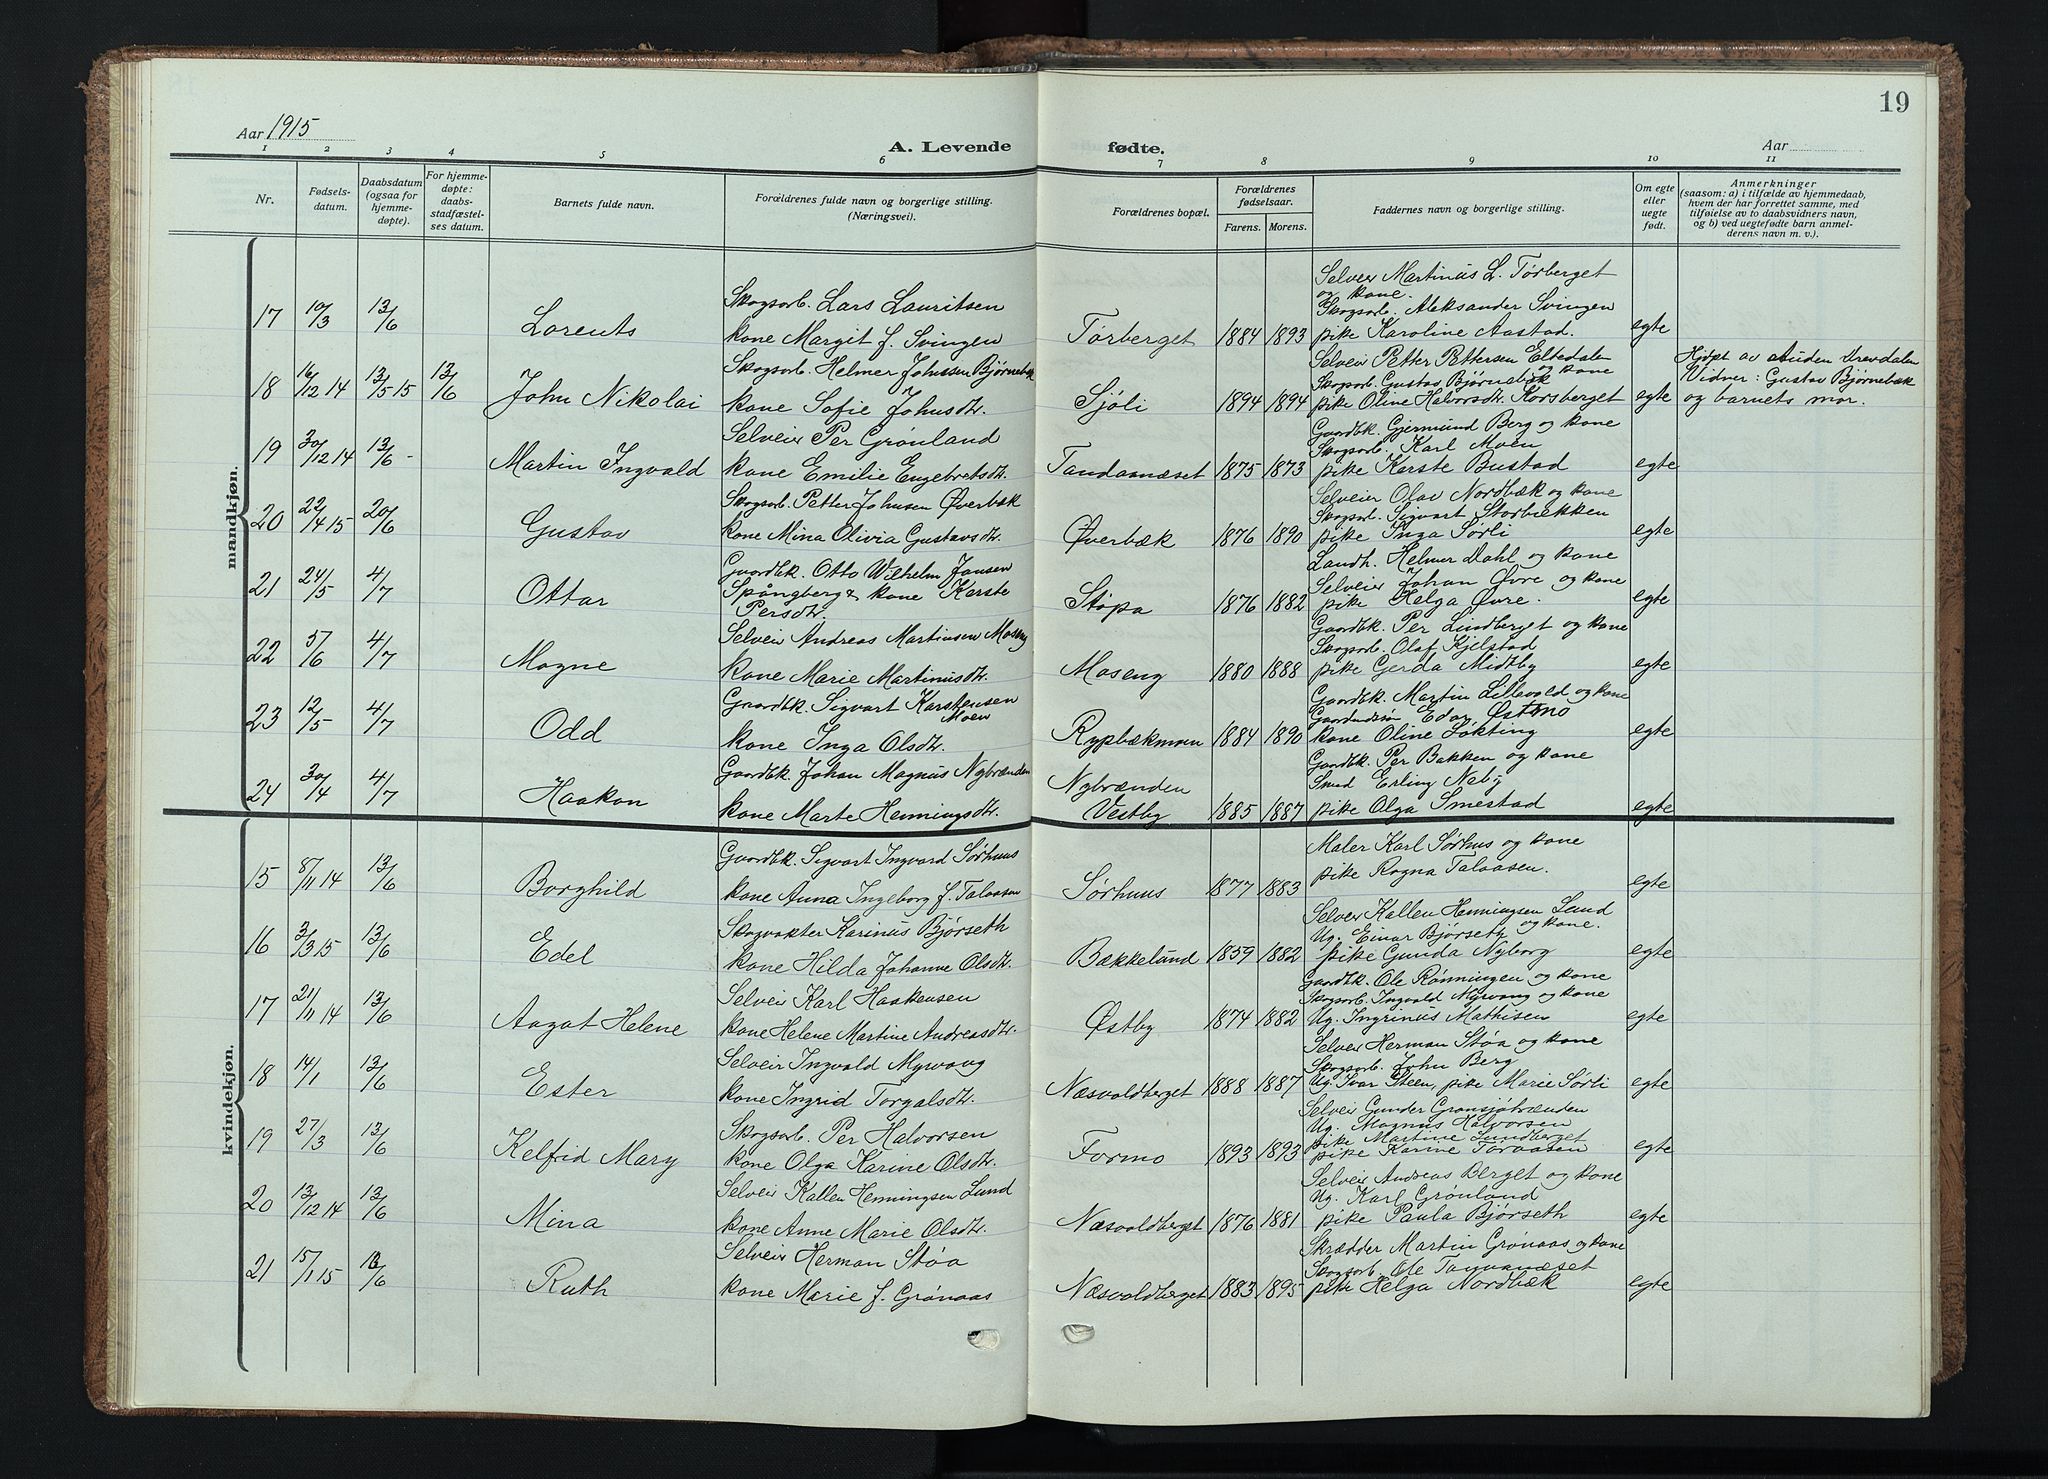 19
Aar 1915
A. Levende fødte.
Aar
1 2 3 4 5 6 7 8 9 10 11
Nr.
Fødsels-
datum.
Daabsdatum
(ogsaa for
hjemme-
døpte).
For hjemme-
døpte:
daabs-
stadfæstel-
ses datum.
Barnets fulde navn.
Forældrenes fulde navn og borgerlige stilling.
(Næringsvei).
Forældrenes bopæl.
Forældrenes
fødselsaar.
Farens. Morens.
Faddernes navn og borgerlige stilling.
Om egte
eller
uegte
født.
Anmerkninger
(saasom: a) i tilfælde av hjemmedaab,
hvem der har forrettet samme, med
tilføielse av to daabsvidners navn,
og b) ved uegtefødte barn anmel-
derens navn m. v.).
mandkjøn.
17 10/3 13/6 Lorents
Skogsarb. Lars Lauritsen
kone Margit f. Svingen
Tørberget 1884 1893
Selveier Martinus L. Tørberget
og kone.
Skogsarb. Aleksander Svingen
pike Karoline Aastad.
egte
18 16/12 14 13/5 15 13/6 John Nikolai
Skogsarb. Helmer Johnsen Bjørnebæk
kone Sofie Johnsdtr.
Sjøli 1894 1894
Selveier Petter Pettersen Eltedalen
og kone
Skogsarb. Gustav Bjørnebæk
pike Oline Halvorsdtr. Korsberget
egte
Hjdøpt av Auden Drevdalen
Vidner: Gustav Bjørnebæk
og barnets mor.
19 30/12 14 13/6 - Martin Ingvald
Selveier Per Grønland
kone Emilie Engebretsdtr.
Tandaanæset 1875 1873
Gaardbk. Gjermund Berg og kone
Skogsarb. Karl Moen
pike Karste Bustad
egte
20 22/4 15 20/6 Gustav
Skogsarb. Petter Johnsen Øverbæk
kone Mina Olivia Gustavsdtr.
Øverbæk 1876 1890
Selveier Olav Nordbæk og kone
Skogsarb. Sigvart Storbækken
pike Inga Sørli
egte
21 24/5 4/7 Ottar
Gaardbk. Otto Wilhelm Jansen
Spångberg & kone Karste
Persdtr.
Støpa 1876 1882
Landh. Helmer Dahl og kone
Selveier Johan Øvre og kone
pike Helga Øvre.
egte
22 5/6 4/7 Magne
Selveier Andreas Martinsen Moseng
kone Marie Martinusdtr.
Moseng 1880 1888
Gaardbk. Per Lindberget og kone
Skogsarb. Olaf Kjelstad
pike Gerda Midtby
egte
23 12/5 4/7 Odd
Gaardbk. Sigvart Karstensen
Moen
kone Inga Olsdtr.
Rypbækmoen 1884 1890
Gaardbk. Martin Lillevold og kone
Edor Østmo
kone Oline Løkting
egte
24 30/4 4/7 Haakon
Gaardbk. Johan Magnus Nybrænden
kone Marte Henningsdtr.
Nybrænden
Vestby 1885 1887
Gaardbk. Per Bakken og kone
Smed Erling Neby
pike Olga Smestad
egte
kvindekjøn.
15 8/11 14 13/6 Borghild
Gaardbk. Sigvart Ingvard Sørhuus
kone Anna Ingeborg f. Talaasen
Sørhuus 1877 1883
Maler Karl Sørhus og kone
pike Ragna Talaasen.
egte
16 3/3 15 13/6 Edel
Skogvakter Karinus Bjørseth
kone Hilda Johanne Olsdtr.
Bækkelund 1859 1882
Selveier Kallen Henningsen Lund
og kone.
Ug. Einar Bjørseth
pike Gunda Nyborg
egte
17 21/11 14 13/6 Aagot Helene
Selveier Karl Haakensen
kone Helene Martine Andreasdtr.
Østby 1874 1882
Gaardbk. Ole Rønningen og kone
Skogsarb. Ingvald Myrvang og kone
Ug. Ingrinus Mathisen
egte
18 14/1 13/6 Ester
Selveier Ingvald Myrvang
kone Ingrid Torgalsdtr.
Næsvoldberget 1888 1887
Selveier Herman Støa og kone
Skogsarb. John Berg
Ug. Ivar Steen, pike Marie Sørli
egte
19 27/3 13/6 Kelfrid Mary
Skogsarb. Per Halvorsen
kone Olga Karine Olsdtr.
Formo 1893 1893
Selveier Gunder Grønsjøbrænden
Ug. Magnus Halvorsen
pike Martine Lundberget
pike Karine Toraasen
egte
20 13/12 14 13/6 Mina
Selveier Kallen Henningsen Lund
kone Anne Marie Olsdtr.
Næsvoldberget 1876 1881
Selveier Andreas Berget og kone
Ug. Karl Grønland
pike Paula Bjørseth
egte
21 15/1 15 13/6 Ruth
Selveier Herman Støa
kone Marie f. Grønaas
Næsvoldberget 1883 1895
Skrædder Martin Grønaas og kone
Skogsarb. Ole Tanvanæset
pike Helga Nordbæk
egte